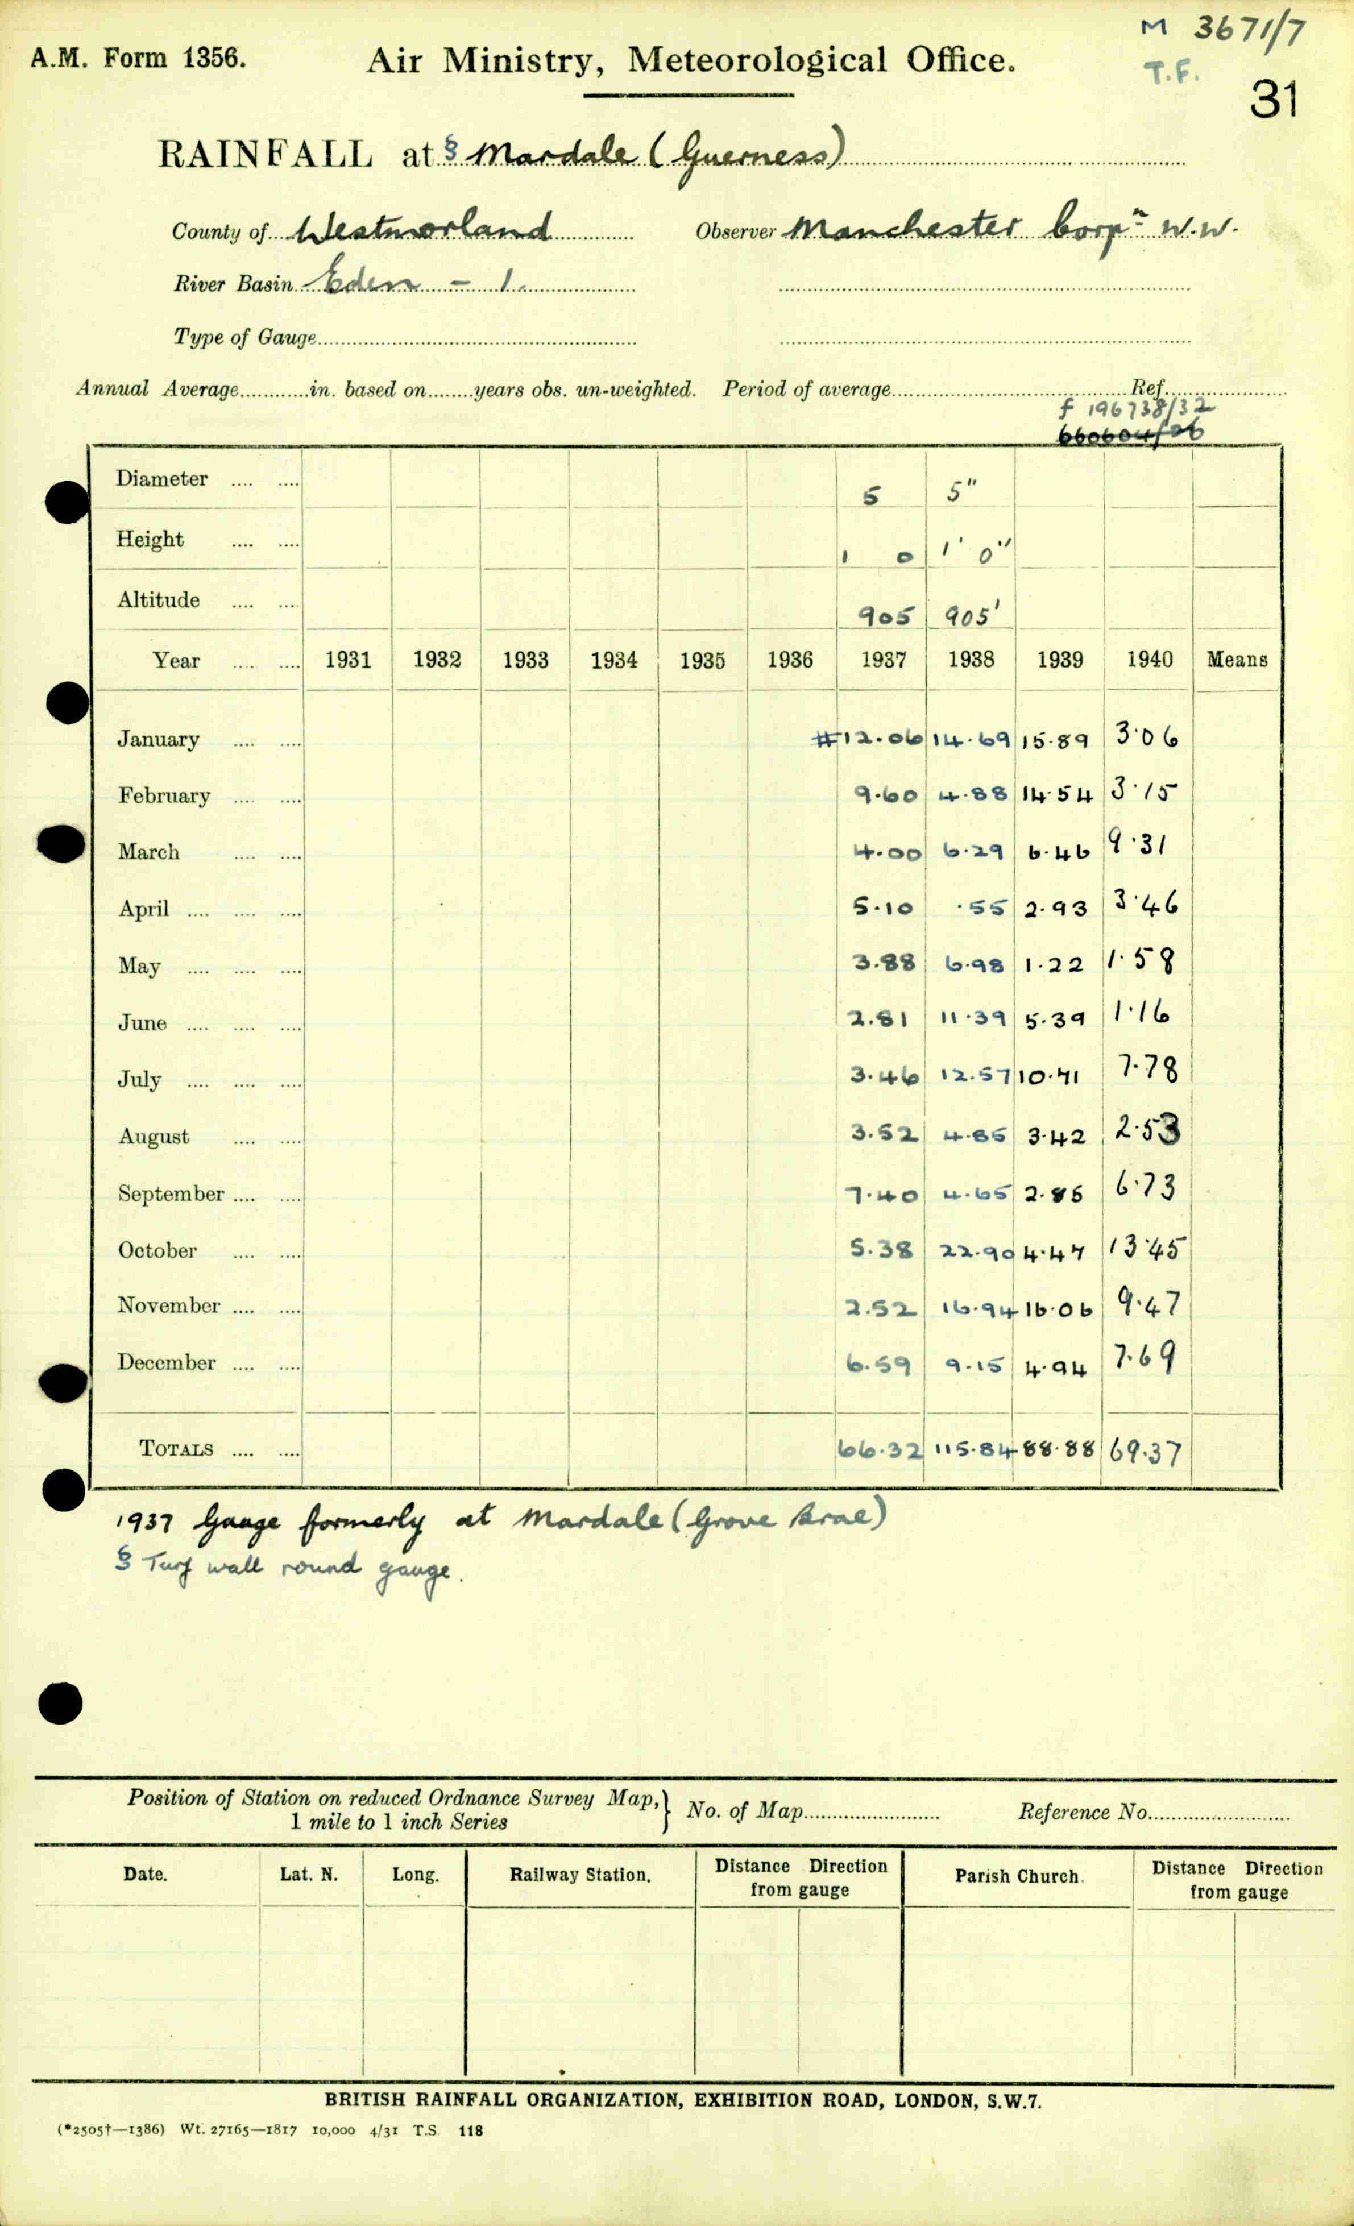 M 3671/7
A.M. Form 1356. Air Ministry, Meteorological Office. T.F.
31
RAINFALL at § Mardale (Guerness)
County of Westmorland Observer Manchester Corpn W.W.
River Basin Eden - 1.
Type of Gauge
Annual Average in. based on years obs. un-weighted. Period of average Ref.
f 196738/32
660604/26
Diameter 5 5"
Height 1 0 1' 0"
Altitude 905 905'
Year 1931 1932 1933 1934 1935 1936 1937 1938 1939 1940 Means
January #12.06 14.69 15.89 3.06
February 9.60 4.88 14.54 3.15
March 4.00 6.29 6.46 9.31
April 5.10 .55 2.93 3.46
May 3.88 6.98 1.22 1.58
June 2.81 11.39 5.39 1.16
July 3.46 12.57 10.71 7.78
August 3.52 4.85 3.42 2.53
September 7.40 4.65 2.85 6.73
October 5.38 22.90 4.47 13.45
November 2.52 16.94 16.06 9.47
December 6.59 9.15 4.94 7.69
TOTALS 66.32 115.84 88.88 69.37
1937 Gauge formerly at Mardale (Grove Brae)
§ Turf wall round gauge.
Position of Station on reduced Ordnance Survey Map, 1 mile to 1 inch Series } No. of Map Reference No.
Date. Lat. N. Long. Railway Station. Distance Direction from gauge Parish Church. Distance Direction from gauge
BRITISH RAINFALL ORGANIZATION, EXHIBITION ROAD, LONDON, S.W.7.
(*2505†—1386) Wt. 27165—1817 10,000 4/31 T.S. 118